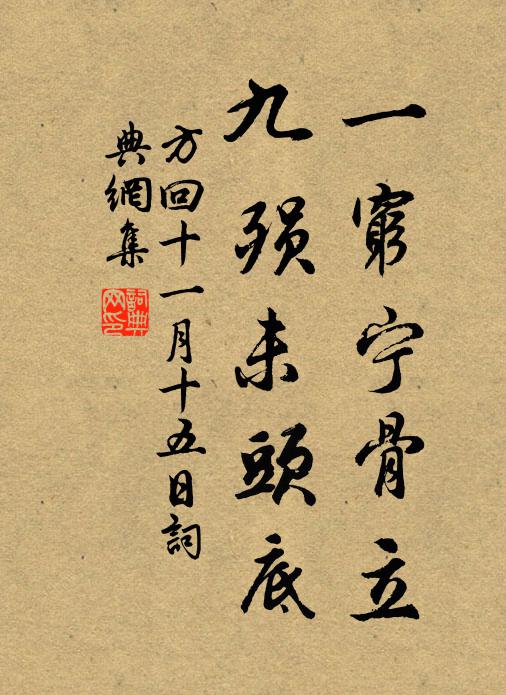 一窮宁骨立
九殒未頭底
方回十一月十五日詞
典網集
詞典网印